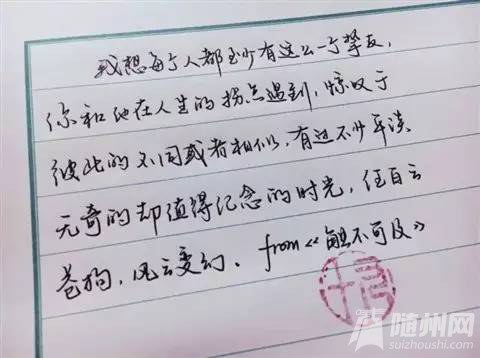 我想每个人都至少有这么一个挚友，
你和他在人生的拐点遇到，惊叹于
彼此的不同或者相似，有过不少平淡
无奇的却值得纪念的时光，任白云
苍狗，风云变幻。from《触不可及》
随州网
suizhoushi.com